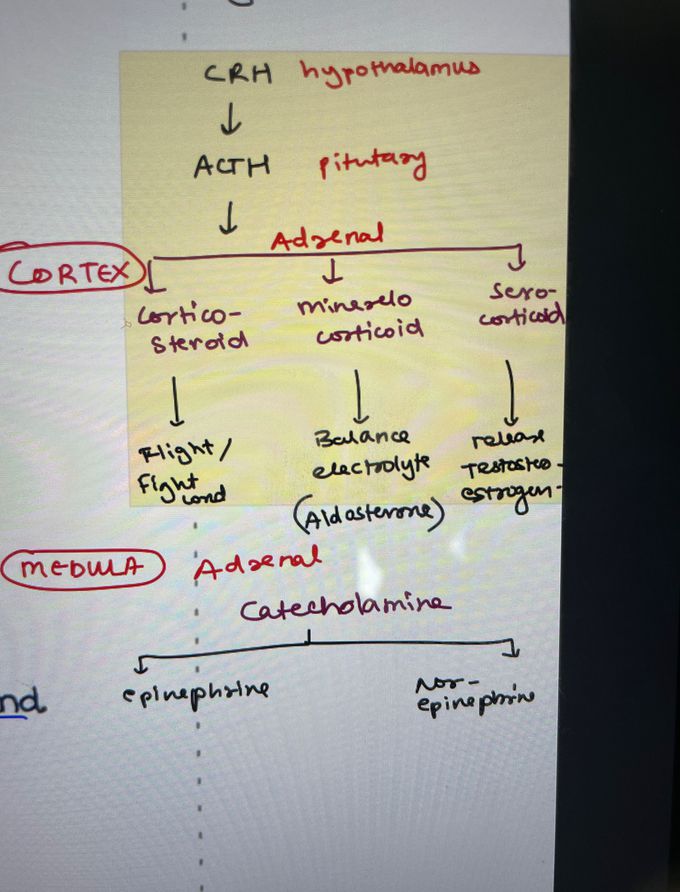 CRH hypothalamus
ACTH pitutary
Adrenal
CORTEX
Cortico-
Steroid
minerelo
corticoid
Sexo-
corticoid
Flight/
Fight cond
Balance
electrolyte
(Aldasterone)
release
Testosteo-
estrogen-
MEDULA Adrenal
Catecholamine
nd
epinephrine
Nor-
epinephrine